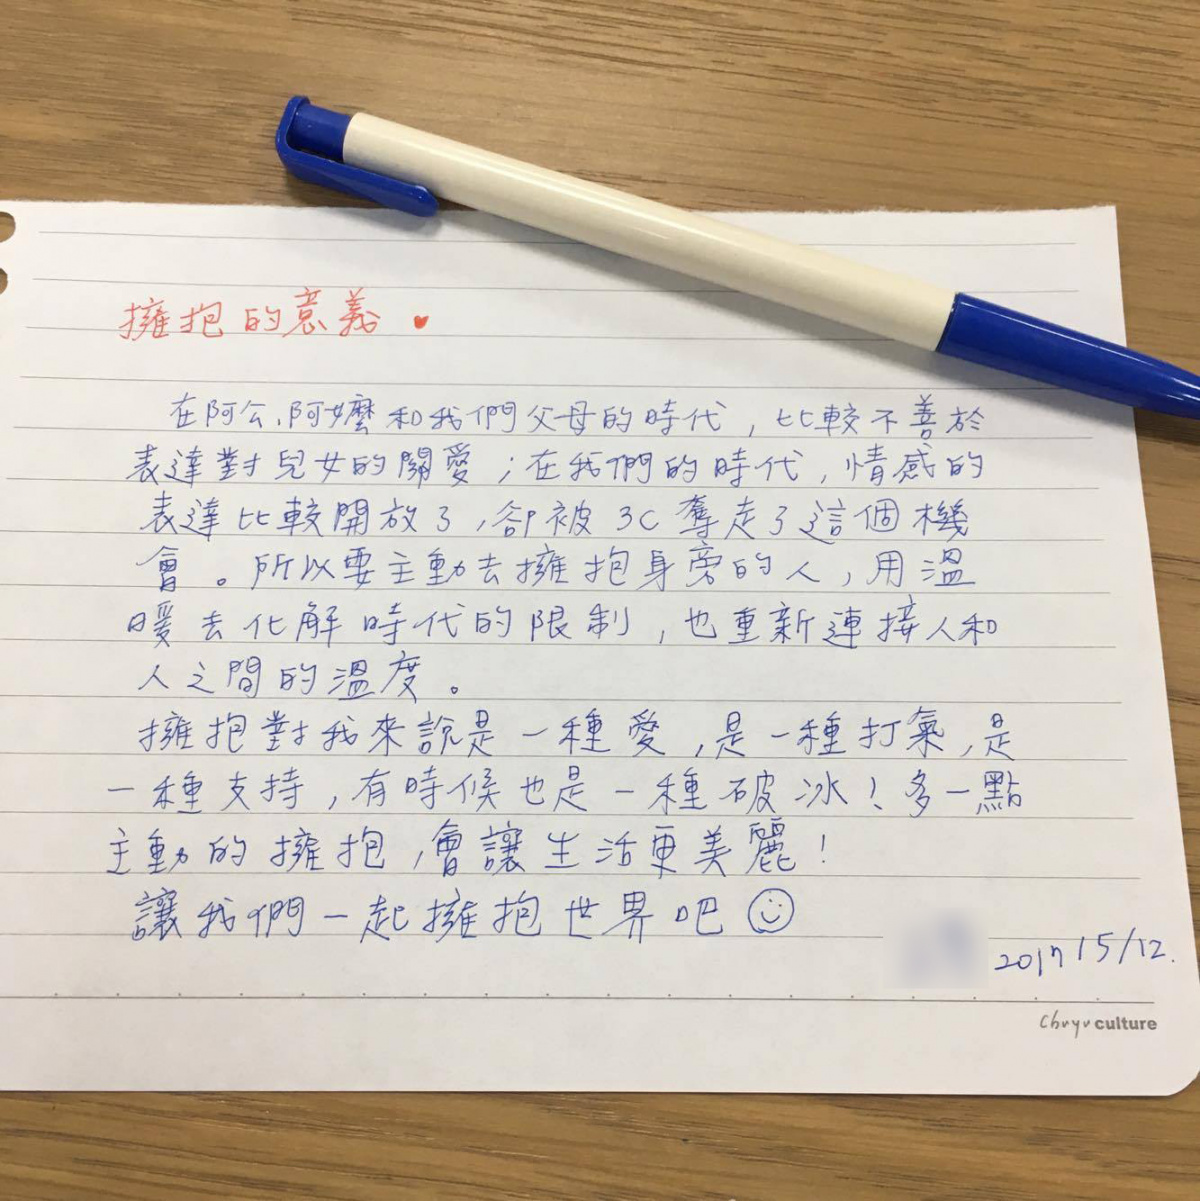 擁抱的意義
在阿公、阿嬤和我們父母的時代，比較不善於
表達對兒女的關愛；在我們的時代，情感的
表達比較開放了，卻被3C奪走了這個機
會。所以要主動去擁抱身旁的人，用溫
暖去化解時代的限制，也重新連接人和
人之間的溫度。
擁抱對我來說是一種愛，是一種打氣，是
一種支持，有時候也是一種破冰！多一點
主動的擁抱，會讓生活更美麗！
讓我們一起擁抱世界吧
2017 15/12.
Chuyu culture